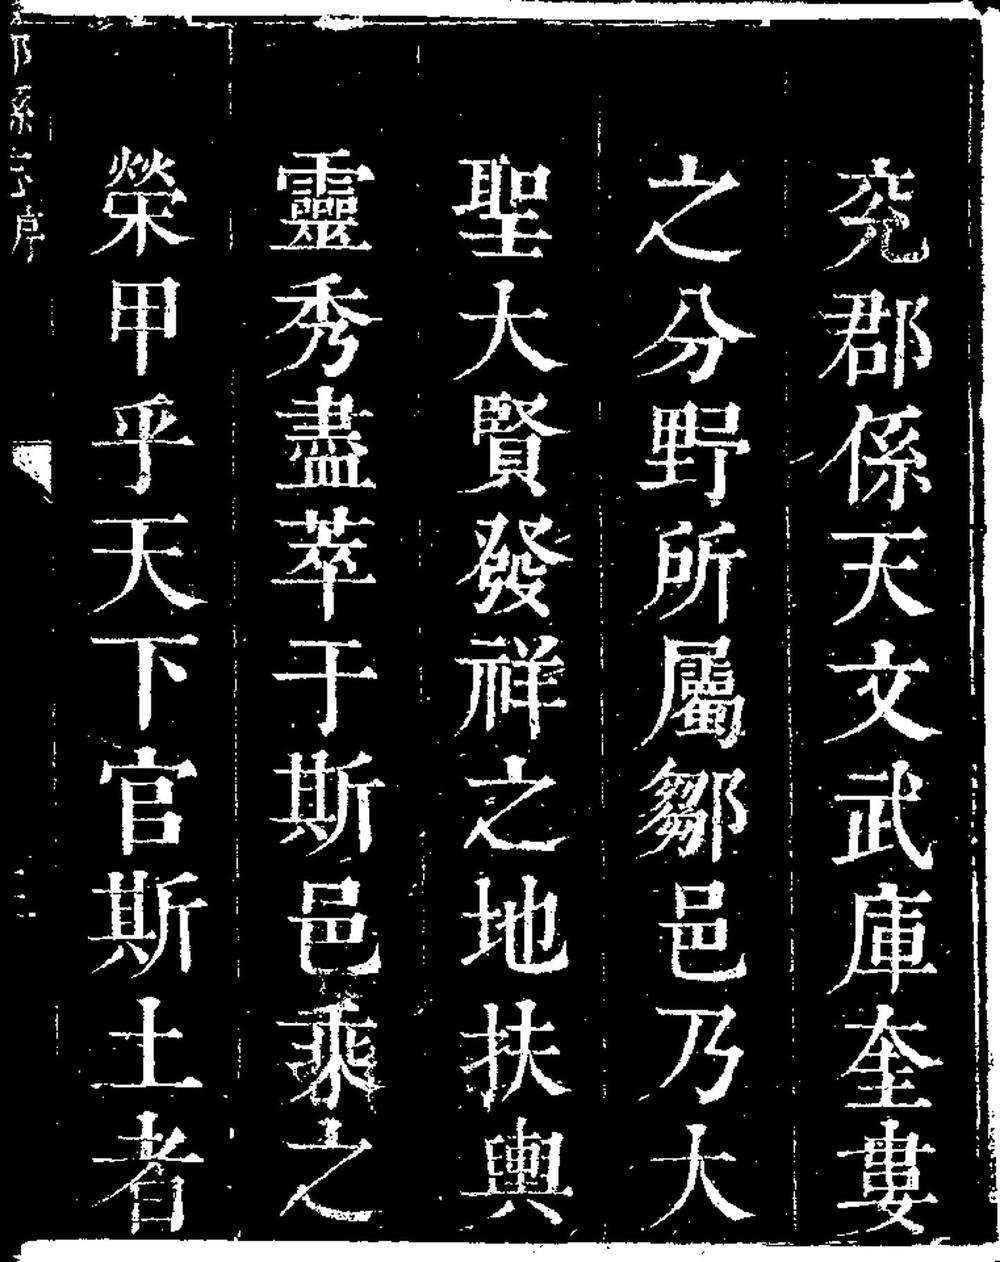 兖郡係天文武庫奎婁
之分野所屬鄒邑乃大
聖大賢發祥之地扶輿
靈秀盡萃于斯邑乘之
榮甲乎天下官斯土者